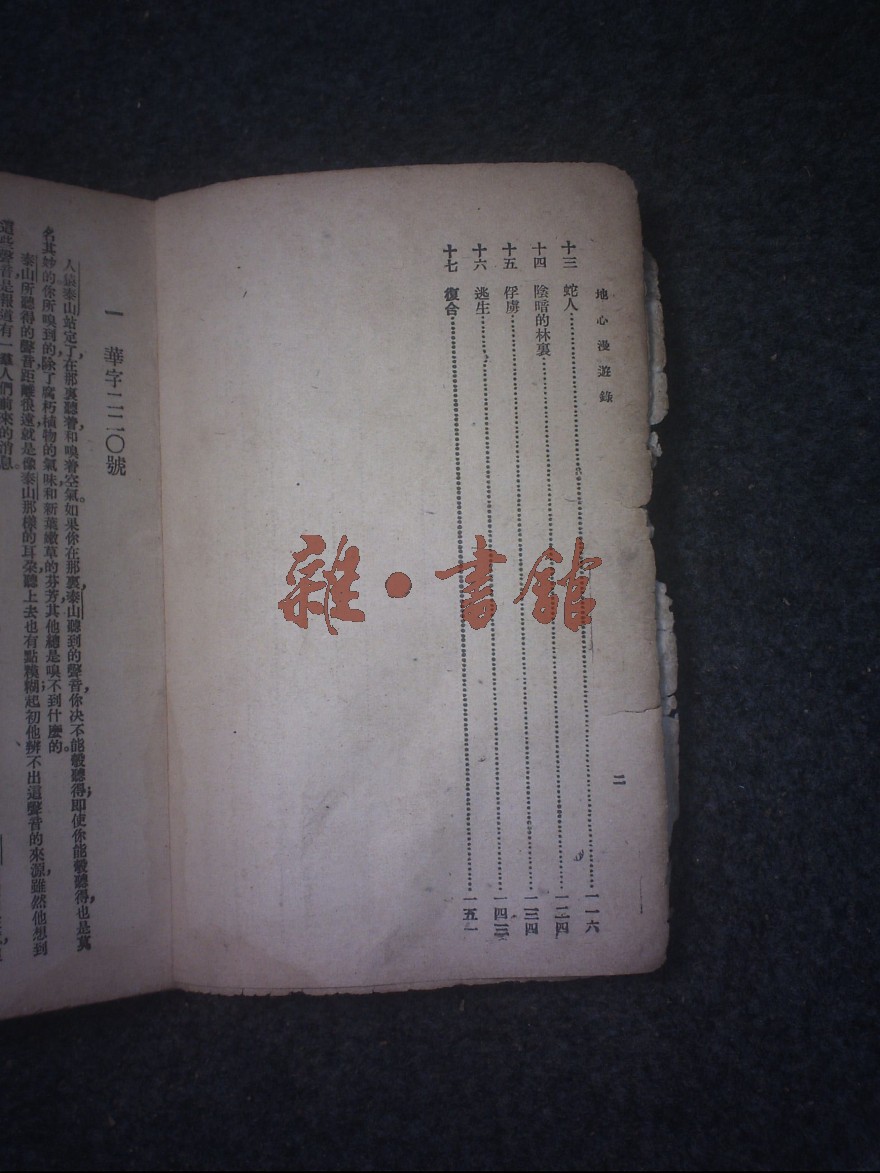 地心漫遊錄
二
十三 蛇人 一一六
十四 陰暗的林裏 一二四
十五 俘虜 一三四
十六 逃生 一四三
十七 復合 一五一
雜·書館
一 華字二二〇號
人猿泰山站定了,在那裏聽着和嗅着空氣。如果你在那裏,泰山聽到的聲音,你決不能彀聽得;即使你能彀聽得,也是莫
名其妙的。你所嗅到的,除了腐朽植物的氣味和新葉嫩草的芬芳,其他總是嗅不到什麼的。
泰山所聽得的聲音,距離很遠;就是像泰山那樣的耳朵,聽上去也有點糢糊。起初他辨不出這聲音的來源,雖然他想到
這些聲音是報道有一羣人們前來的消息。